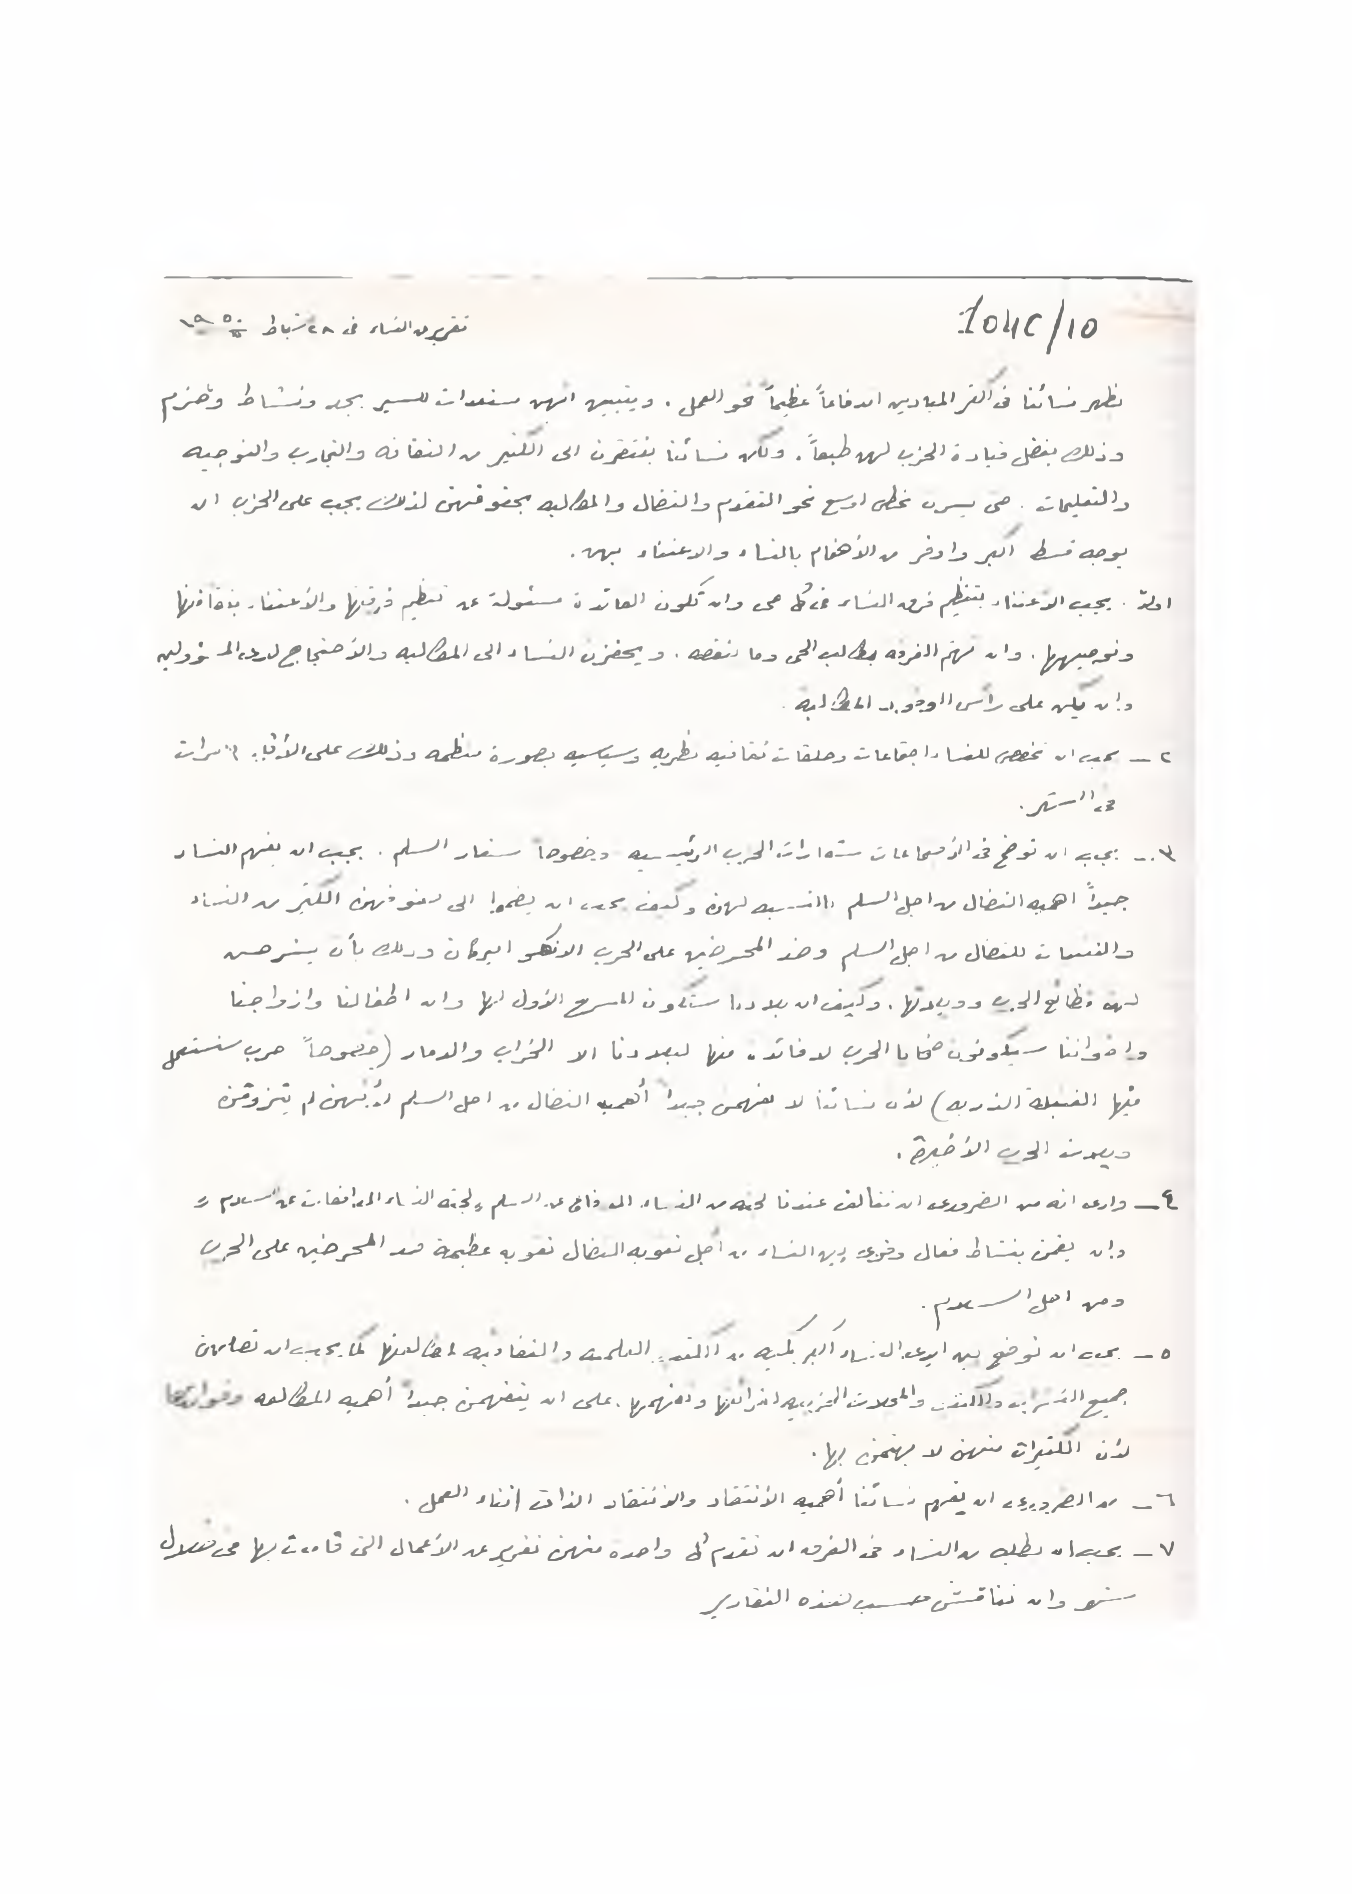 104C/10
تقرير من النساء في ٢٨ شباط ١٩٥٠
تظهر نسائنا في اكثر الميادين اندفاعاً عظيماً نحو العمل . ويتبين انهن مستعدات للسير بجد ونشاط وحزم
وذلك بفضل قيادة الحزب لهن طبعاً . ولكن نسائنا يفتقرن الى الكثير من الثقافه والتجارب والتوجيه
والتعليمات . حتى يسرن بخطى اوسع نحو التقدم والنضال والمطالبه بحقوقهن لذلك يجب على الحزب ان
يوجه قسط اكبر واوفر من الأهتمام بالنساء والاعتناء بهن .
اولاً . يجب الاعتناء بتنظيم فرق النساء في كل حي وان تكون القائدة مسئولة عن تنظيم فرقتها والأعتناء بثقافتها
وتوجيهها . وان تهتم الفرقه بمطالب الحي وما ينقصه . ويحفزن النساء الى المطالبه والأحتجاج لدى المسؤولين
وان يكن على رأس الوفود المطالبة .
٢ - يجب ان تخصص للنساء اجتماعات وحلقات ثقافيه نظريه وسياسيه بصورة منظمه وذلك على الأقل ٣ مرات
في الشهر .
٣ - يجب ان توضح في الأجتماعات شعارات الحزب الرئيسيه وخصوصاً شعار السلم . يجب ان يفهم النساء
جيداً اهميه النضال من اجل السلم بالنسبه لهن وكيف يجب ان يضموا الى صفوفهن الكثير من النساء
والفتيات للنضال من اجل السلم وضد المحرضين على الحرب الانكلو اميركان وذلك بأن يشرحن
لهن فظائع الحرب وويلاتها . وكيف ان بلادنا ستكون المسرح الأول لها وان اطفالنا وازواجنا
واخواننا سيكونون ضحايا الحرب لا فائدة منها لبلادنا الا الخراب والدمار (خصوصاً حرب ستستعمل
فيها القنبلة الذريه) لأن نسائنا لا يفهمن جيداً أهميه النضال من اجل السلم لأنهن لم يتذوقن
ويلات الحرب الأخيرة .
٤ - وارى انه من الضروري ان تتألف عندنا لجنه من النساء للدفاع عن السلم "لجنه النساء المدافعات عن السلام"
وان يقمن بنشاط فعال وقوي بين النساء من أجل تقويه النضال تقويه عظيمة ضد المحرضين على الحرب
ومن اجل السلام .
٥ - يجب ان توضع بين ايدي النساء اكبر كميه من الكتب العلميه والثقافيه لمطالعتها كما يجب ان تصلهن
جميع النشرات والكتب والمجلات الحزبيه لقرائتها وتفهمها . على ان يتفهمن جيداً أهميه المطالعه وفوائدها
لأن الكثيرات منهن لا يهتمن بها .
٦ - من الضروري ان يفهم نسائنا أهميه الأنتقاد والأنتقاد الذاتي اثناء العمل .
٧ - يجب ان يطلب من النساء في الفرق ان تقدم كل واحدة منهن تقرير عن الأعمال التي قامت بها في خلال
شهر وان تناقش حسب هذه التقارير